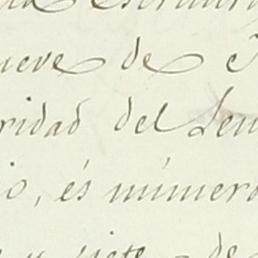 ueve de
ridad del Sen
io, és número
y siete de